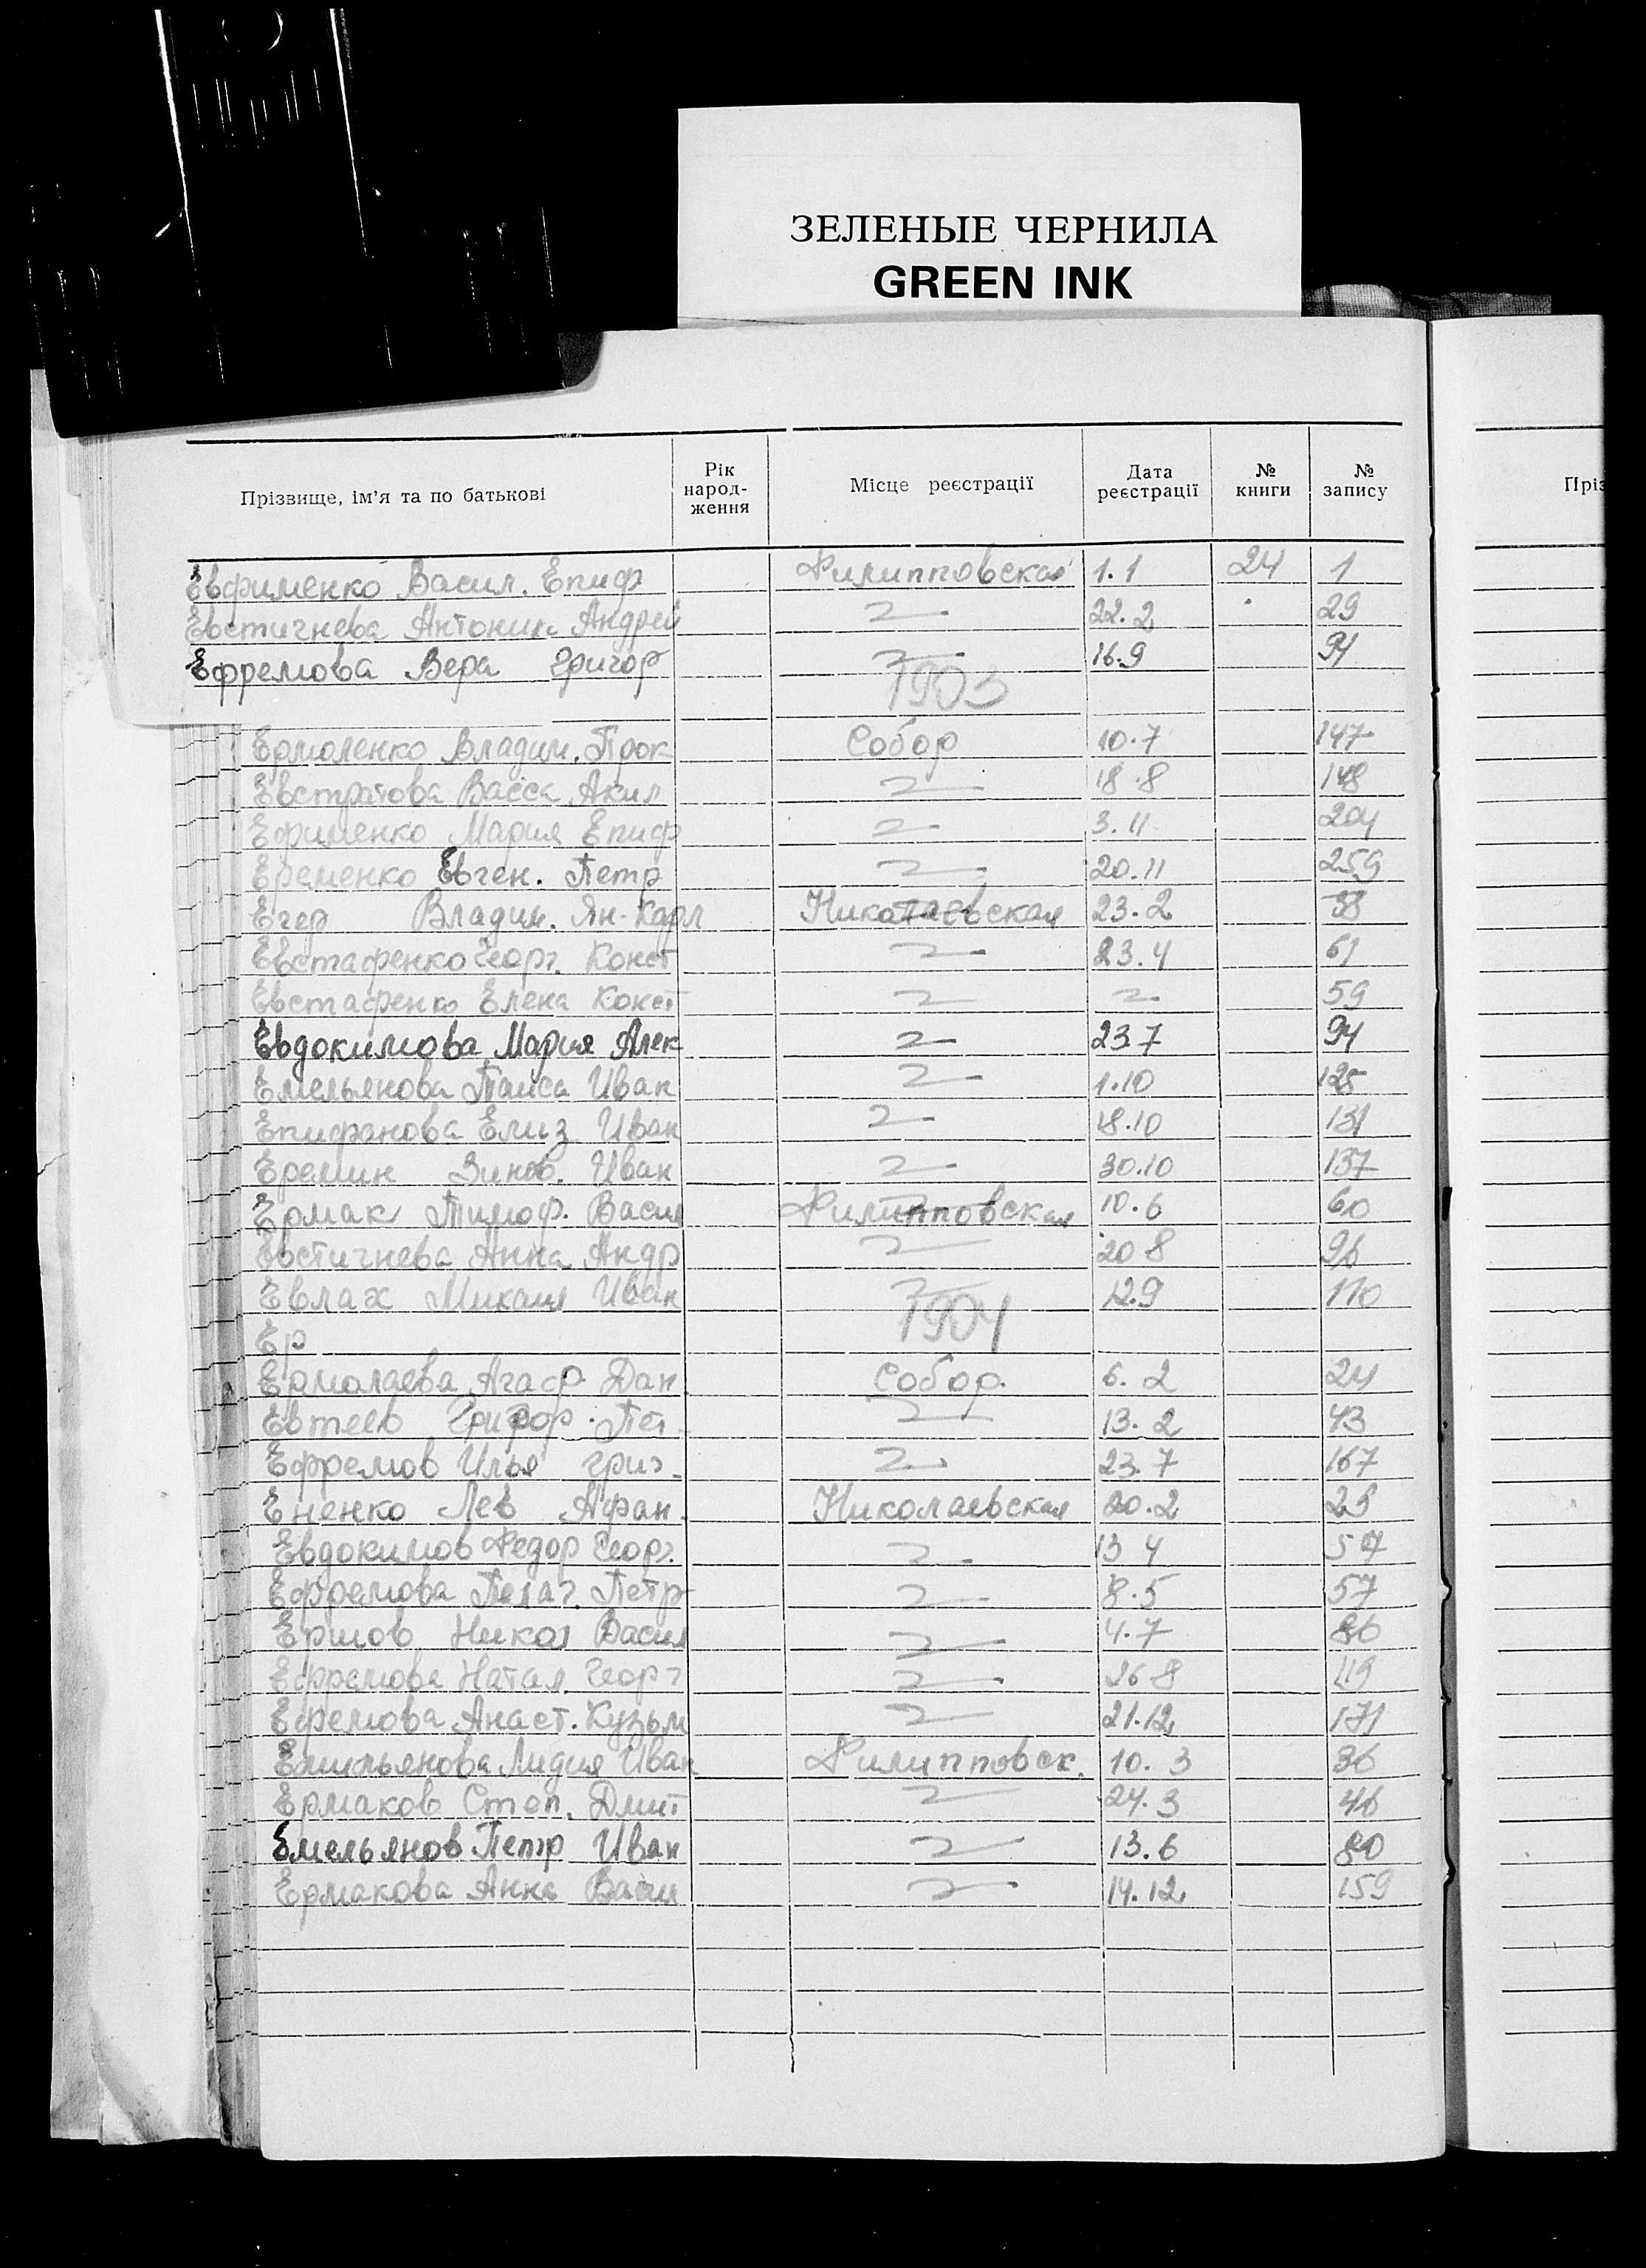 ЗЕЛЕНЫЕ ЧЕРНИЛА
GREEN INK
Прізвище, ім'я та по батькові Рік народ- ження Місце реєстрації Дата реєстрації № книги № запису Пріз
Евфименко Васил. Епиф Филипповская 1.1 24 1
Евстигнева Антонин Андрей 22.2 29
Ефремова Вера Григор 16.9 94
1903
Ермоленко Владим. Прок Собор 10.7 147
Евстратова Васса Акил 18.8 148
Ефименко Мария Епиф 3.11 204
Еременко Евген. Петр 20.11 259
Егер Владим. Ян-Карл Николаевская 23.2 38
Евстафенко Георг. Конст 23.4 61
Евстафенко Елена Конст 59
Евдокимова Мария Алек 23.7 94
Емельянова Таиса Иван 1.10 125
Епифанова Елиз Иван 18.10 131
Еремин Зинов. Иван 30.10 137
Ермак Тимоф. Васил Филипповская 10.6 60
Евстигнева Анна Андр 20 8 96
Евлах Михаил Иван 12.9 110
Ер 1904
Ермолаева Агаф Дан Собор. 6.2 24
Евтеев Григор. Пет 13.2 43
Ефремов Илья Григ. 23.7 167
Ененко Лев Афан. Николаевская 20.2 25
Евдокимов Федор Георг. 13 4
Ефремова Пелаг. Петр 8.5 57
Ершов Никол Васил 4.7 86
Ефремова Натал. Георг 26 8 119
Ефемова Анаст. Кузьм 21.12 171
Емильянова Лидия Иван Филипповск. 10.3 36
Ермаков Степ. Дмит 24.3 46
Емельянов Петр Иван 13.6 80
Ермакова Анна Васил 14.12 159